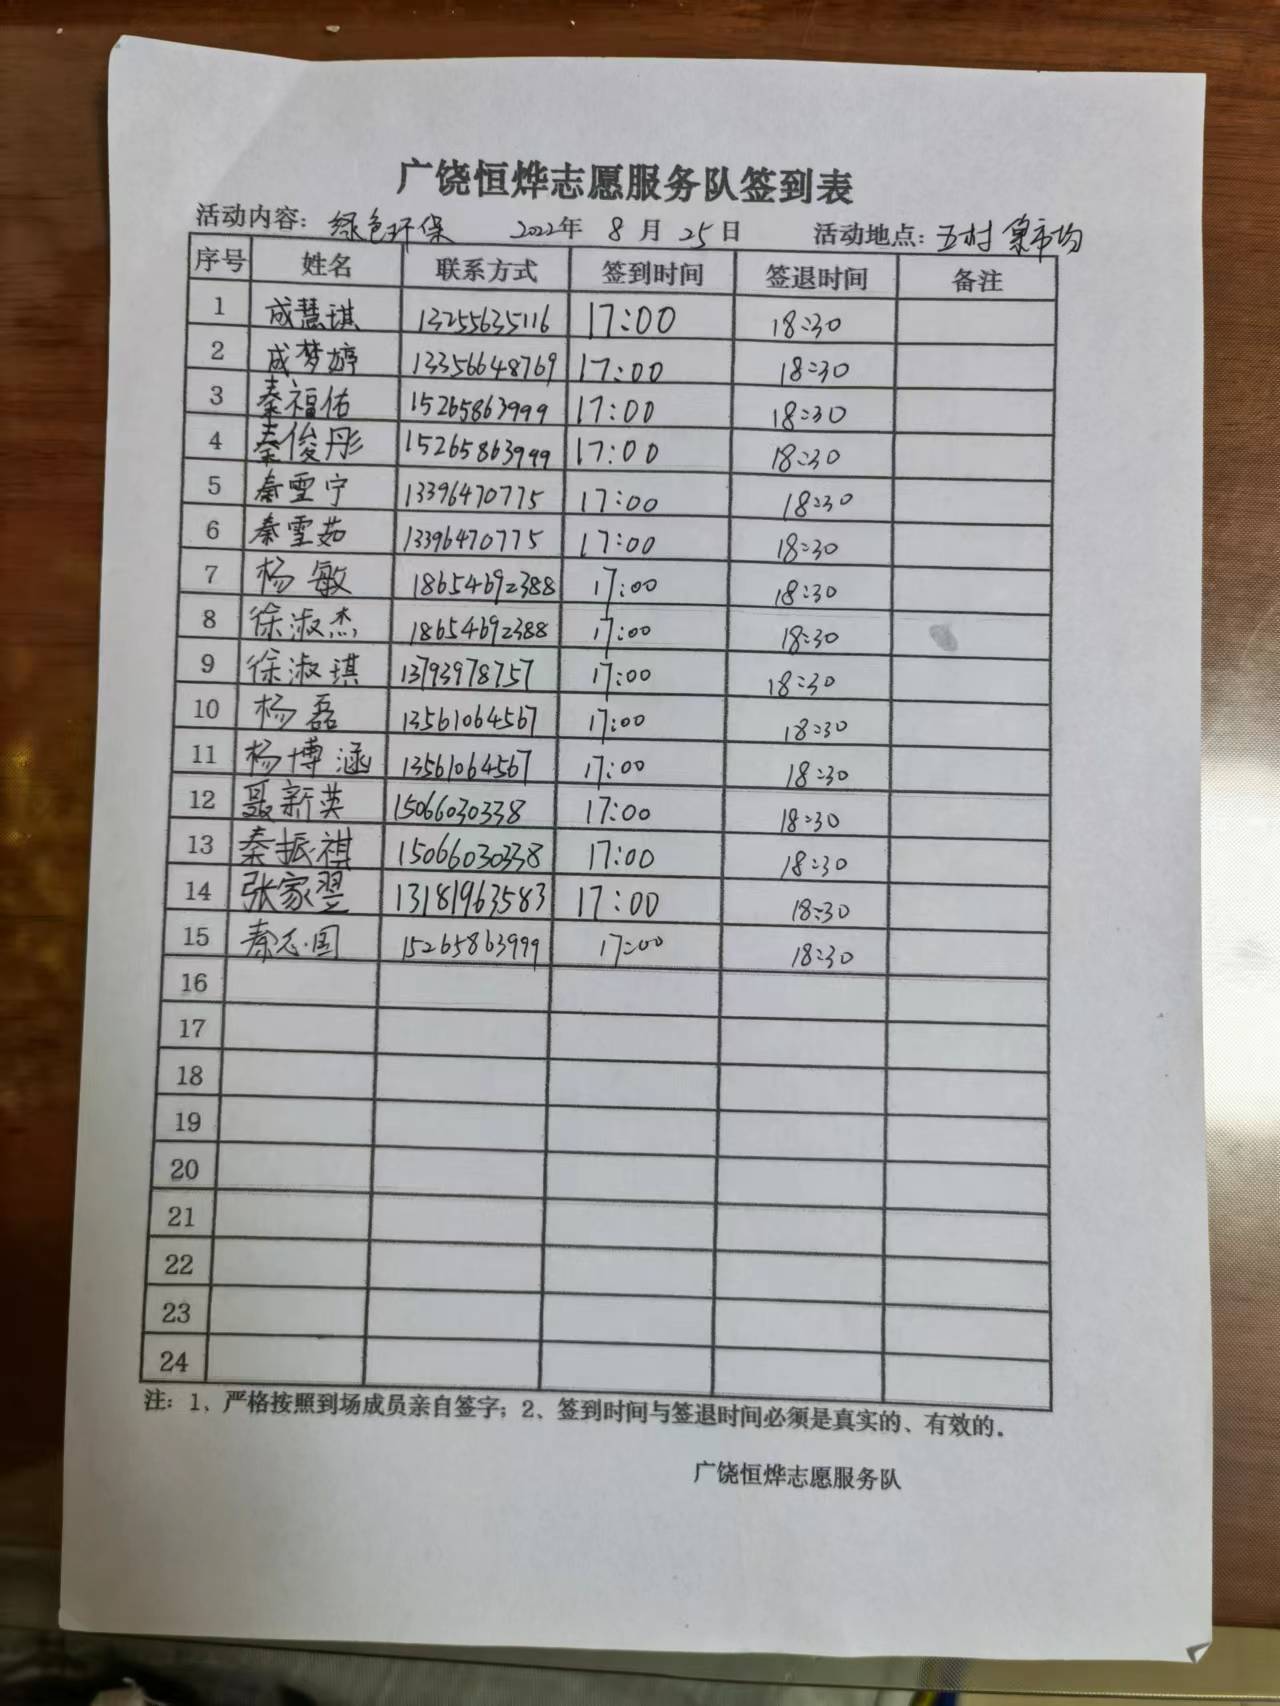 广饶恒烨志愿服务队签到表
活动内容：绿色环保 2022年 8 月 25 日 活动地点：五村集市场
序号 姓名 联系方式 签到时间 签退时间 备注
1 成慧琪 13255635116 17:00 18:30
2 成梦婷 13356648769 17:00 18:30
3 秦福佑 15265863999 17:00 18:30
4 秦俊彤 15265863999 17:00 18:30
5 秦雪宁 13396470775 17:00 18:30
6 秦雪茹 13396470775 17:00 18:30
7 杨敏 18654692388 17:00 18:30
8 徐淑杰 18654692388 17:00 18:30
9 徐淑琪 13793978757 17:00 18:30
10 杨磊 13561064567 17:00 18:30
11 杨博涵 13561064567 17:00 18:30
12 聂新英 15066030338 17:00 18:30
13 秦振祺 15066030338 17:00 18:30
14 张家翌 13181963583 17:00 18:30
15 秦志国 15265863999 17:00 18:30
16
17
18
19
20
21
22
23
24
注：1、严格按照到场成员亲自签字；2、签到时间与签退时间必须是真实的、有效的。
广饶恒烨志愿服务队